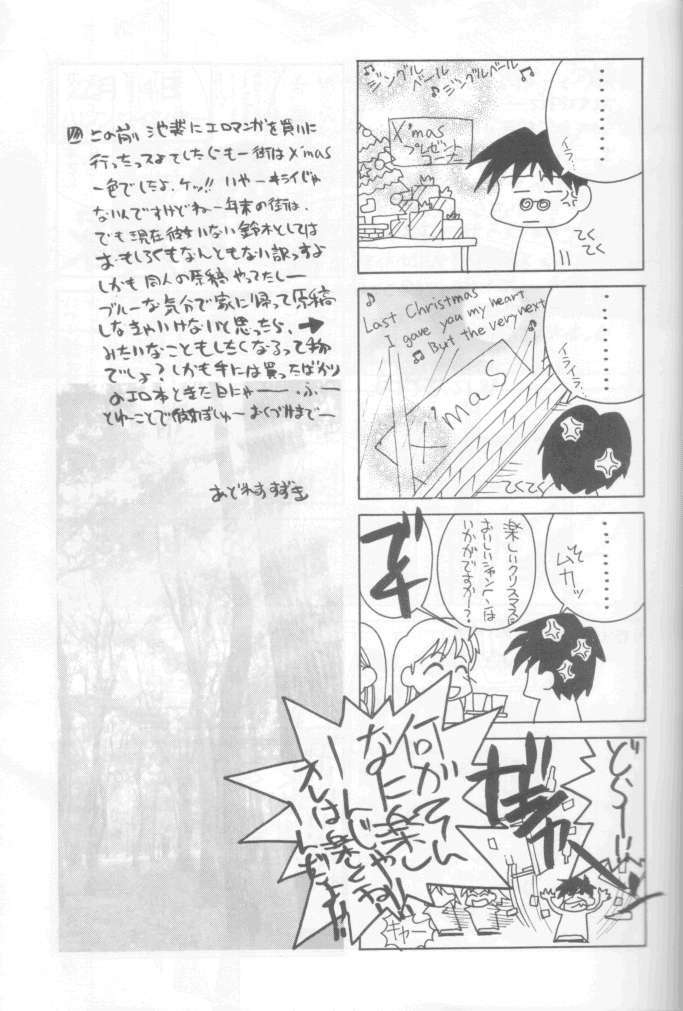 ♪ジングルベール ♪ジングルベール♪
X'mas
プレゼント
コーナー
・・・・・・・・
イラ…
てく
てく
♪
Last Christmas
I gave you my heart
♫ But the very next
♪
・・・・・・・・
イライラ…
X'mas
てくてく
・・・・・・・・
ムカッ
楽しいクリスマスに
おいしいシャンペンは
いかがですかー?
キャー
何がそんなに楽しーんじゃねい
オレは楽しくねーんだよ!!
この前、池袋にエロマンガを買いに
行ったってよでしたぐも一街はX'mas
一色でしたよ、ケッ!! いやーキライじゃ
ないんですけどねー年末の街は、
でも現在彼女いない鈴木としては
おもしろくもなんともない訳っすよ
しかも同人の原稿やってたしー
ブルーな気分で家に帰って原稿
しなきゃいけないと思ったら、→
みたいなこともしたくなるって物
でしょ?しかも手には買ったばかり
のエロ本ときた日にゃーー、ふー
とゆーことで おくづけまでー
あどれすすずき